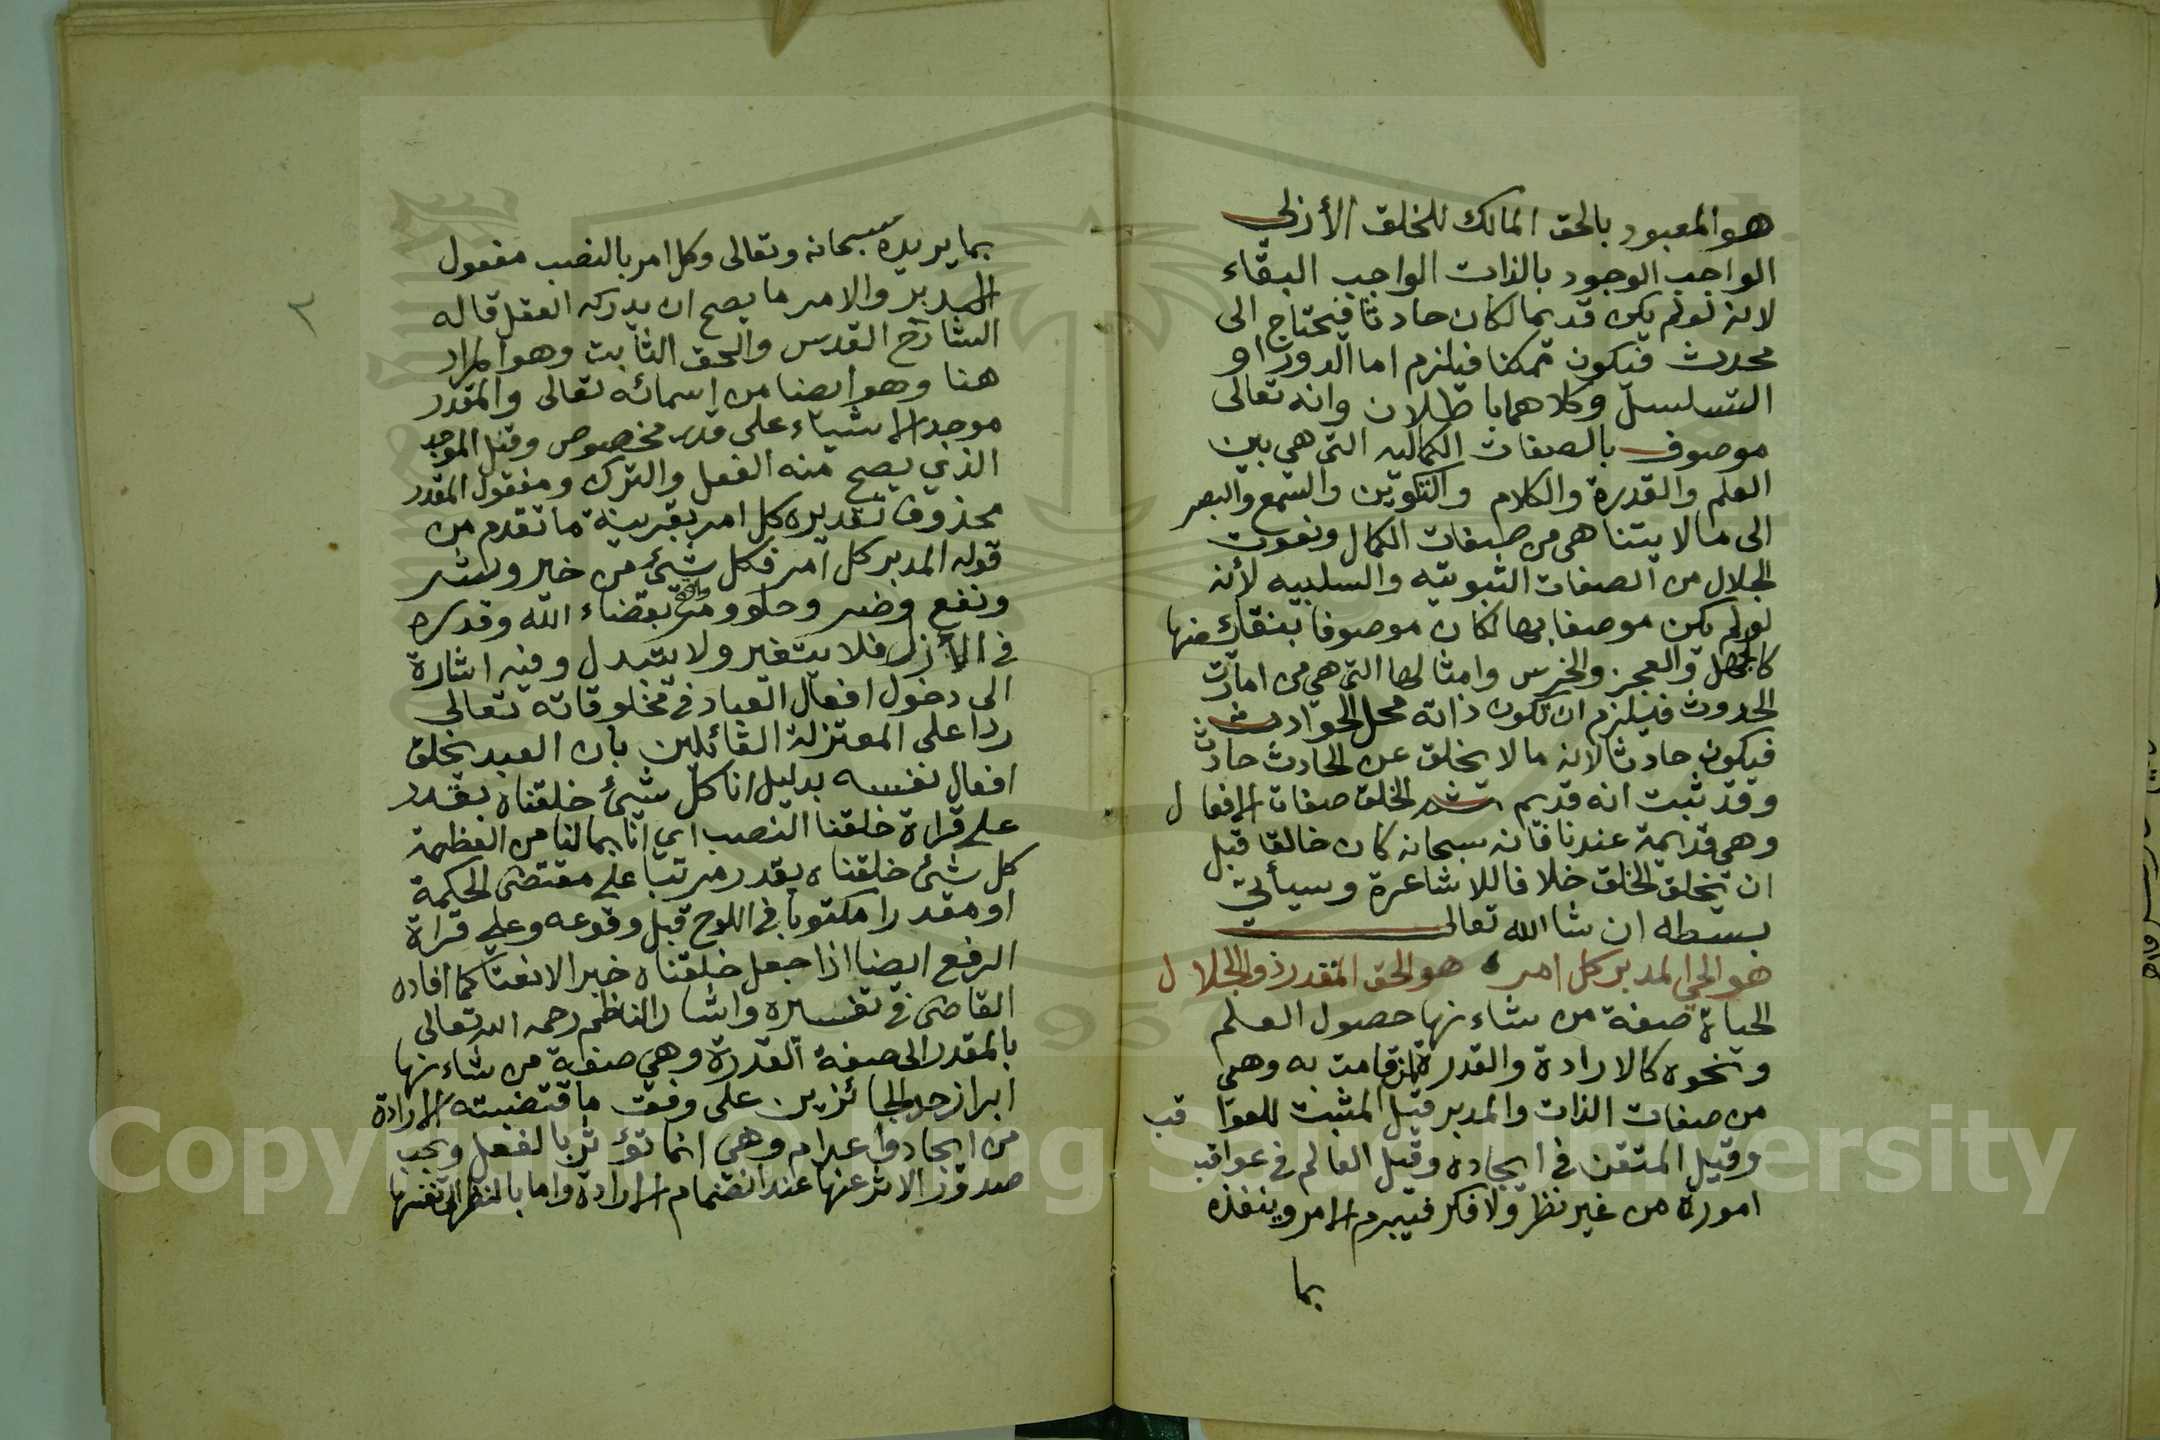 هو المعبود بالحق المالك للخلق الأزلي
الواجب الوجود بالذات الواجب البقاء
لانه لو لم يكن قديما لكان حادثا فيحتاج الى
محدث فيكون ممكنا فيلزم اما الدور او
التسلسل وكلاهما باطلان وانه تعالى
موصوف بالصفات الكماليه التى هى بين
العلم والقدرة والكلام والتكوين والسمع والبصر
الى ما لا يتناهى من صفات الكمال ونعوت
الجلال من الصفات الثبوتيه والسلبيه لأنه
لو لم يكن موصفا بها لكان موصوفا بنقائضها
كالجهل والعجز والخرس وامثالها التى هى من امارت
الحدوث فيلزم ان تكون ذاته محل الحوادث
فيكون حادثا لانه ما لا يخلق عن الحادث حادث
وقد ثبت انه قديم الخلق صفات الافعال
وهى قديمة عندنا فانه سبحانه كان خالقا قبل
ان يخلق الخلق خلافا للاشاعرة وسيأتي
بسطه ان شا الله تعالى
هو الحي المدبر كل امر هو الحق المقدر ذو الجلال
الحياة صفة من شاءنها حصول العلم
ونحوه كالارادة والقدرة لمن قامت به وهى
من صفات الذات والمدبر قيل المثبت للعواقب
وقيل المتقن فى ايجاده وقيل العالم فى عواقب
اموره من غير نظر ولا فكر فيبرم الامر وينفذه
بما
٢
بما يريده سبحانه وتعالى وكل امر بالنصب مفعول
المدبر والامر ما يصح ان يدركه العقل قاله
الشارح القدس والحق الثابت وهو المراد
هنا وهو ايضا من اسمائه تعالى والمقدر
موجد الاشياء على قدر مخصوص وقيل الموجد
الذي يصح منه الفعل والترك ومفعول المقدر
محذوف تقديره كل امر بقرينة ما تقدم من
قوله المدبر كل امر فكل شئ من خير وشر
ونفع وضر وحلو ومر بقضاء الله وقدره
في الأزل فلا يتغير ولا يتبدل وفيه اشارة
الى دخول افعال العباد في مخلوقاته تعالى
ردا على المعتزلة القائلين بان العبد يخلق
افعال نفسه بدليل انا كل شئ خلقناه بقدر
على قراة خلقنا النصب اي انا بمالنا من العظمة
كل شئ خلقناه بقدر مرتبا على مقتضى الحكمة
او مقدرا مكتوبا في اللوح قبل وقوعه وعلى قراة
الرفع ايضا اذا جعل خلقناه خبر الا نعتا كما افاده
القاضى في تفسيره واشار الناظم رحمه الله تعالى
بالمقدر الى صفة القدرة وهى صفة من شاءنها
ابراز حد الجائزين على وفق ما قتضيته الارادة
من ايجاد واعدام وهى انما تؤثر بالفعل ويجب
صدور الاثر عنها عند انضمام الارادة واما بالنظر الى نفسها
Copyright © King Saud University